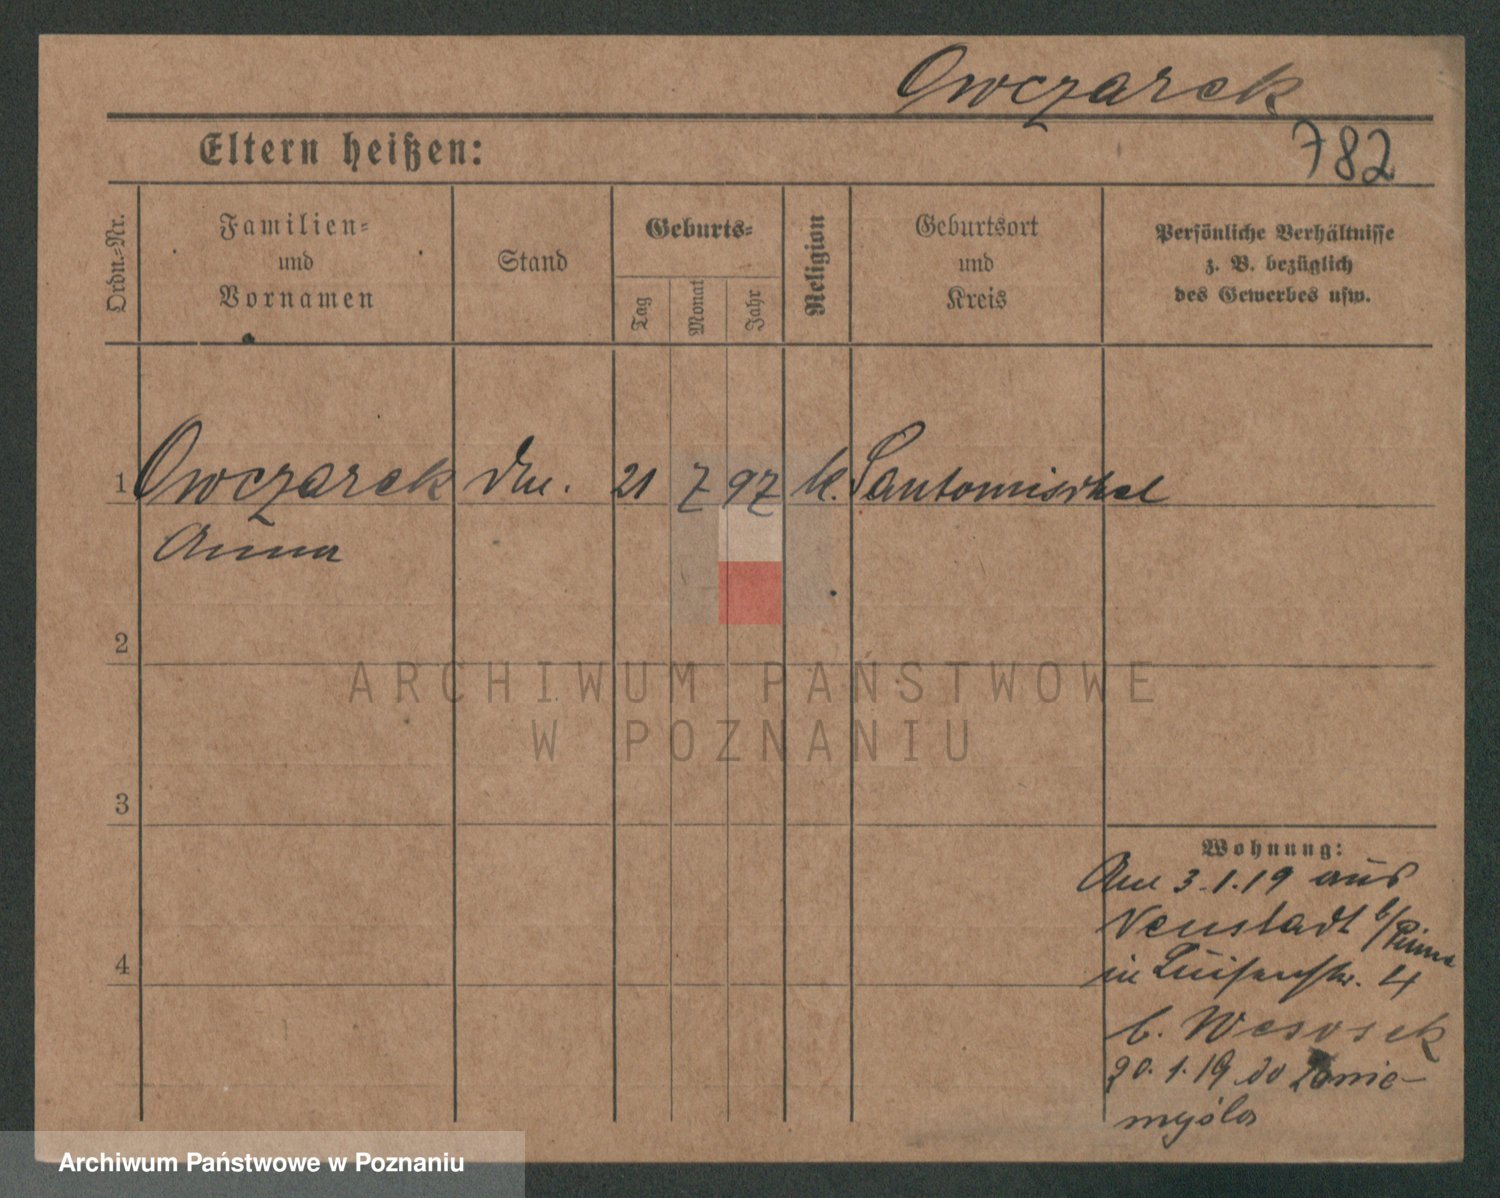 Owczarek
782
Eltern heißen:
Ordn.-Nr.
Familien-
und
Vornamen
Stand
Geburts-
Tag
Monat
Jahr
Religion
Geburtsort
und
Kreis
Persönliche Verhältnisse
z. B. bezüglich
des Gewerbes usw.
1 Owczarek 21 7 97 k. Santomischel
Anna
2
3
4
Wohnung:
Am 3.1.19 aus
Neustadt b/Pinne
in Luisenstr. 4
b. Wesosek
20.1.19 do Zanie-
myśla
ARCHIWUM PAŃSTWOWE
W POZNANIU
Archiwum Państwowe w Poznaniu